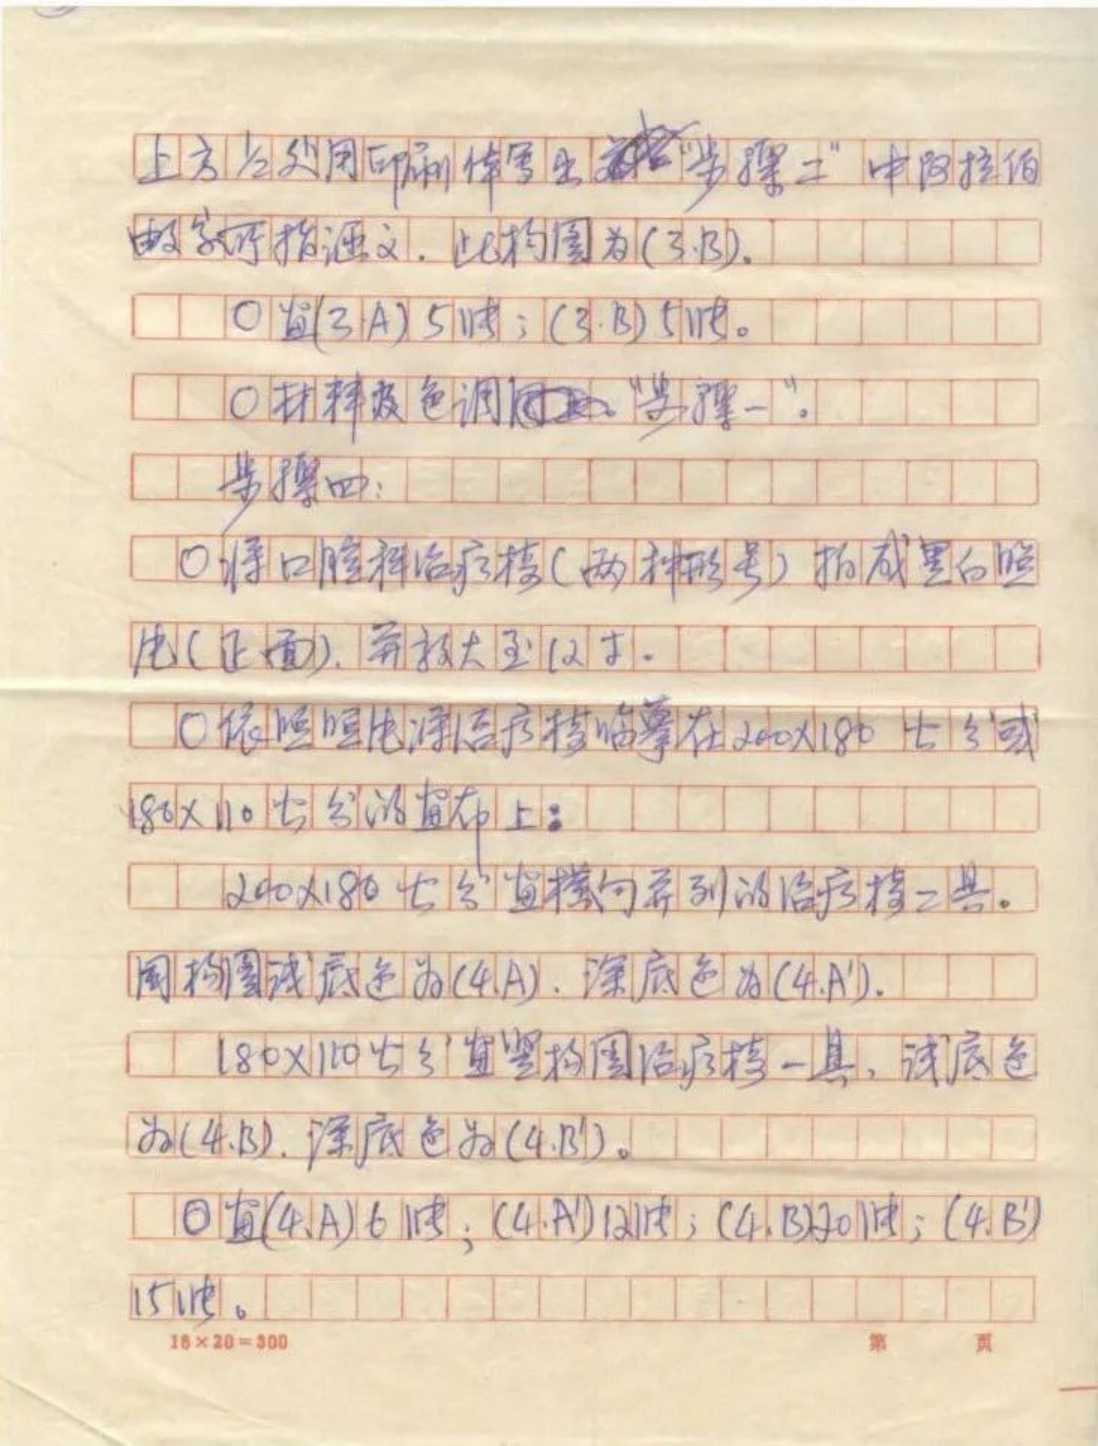 上方1/2处用印刷体写出"步骤二"中阿拉伯
数字所指涵义.此构图为(3.B).
○画(3.A)5张;(3.B)5张。
○材料及色调同"步骤一".
步骤四:
○将口腔科治疗椅(两种形号)拍成黑白照
片(正面).并放大至12寸.
○依照照片将治疗椅临摹在200×180公分或
180×110公分的画布上:
200×180公分画横向并列的治疗椅二具。
同构图浅底色为(4.A).深底色为(4.A').
180×110公分画竖构图治疗椅一具,浅底色
为(4.B).深底色为(4.B')。
○画(4.A)6张;(4.A')12张;(4.B)20张;(4.B')
15张。
18×20=300
第 页